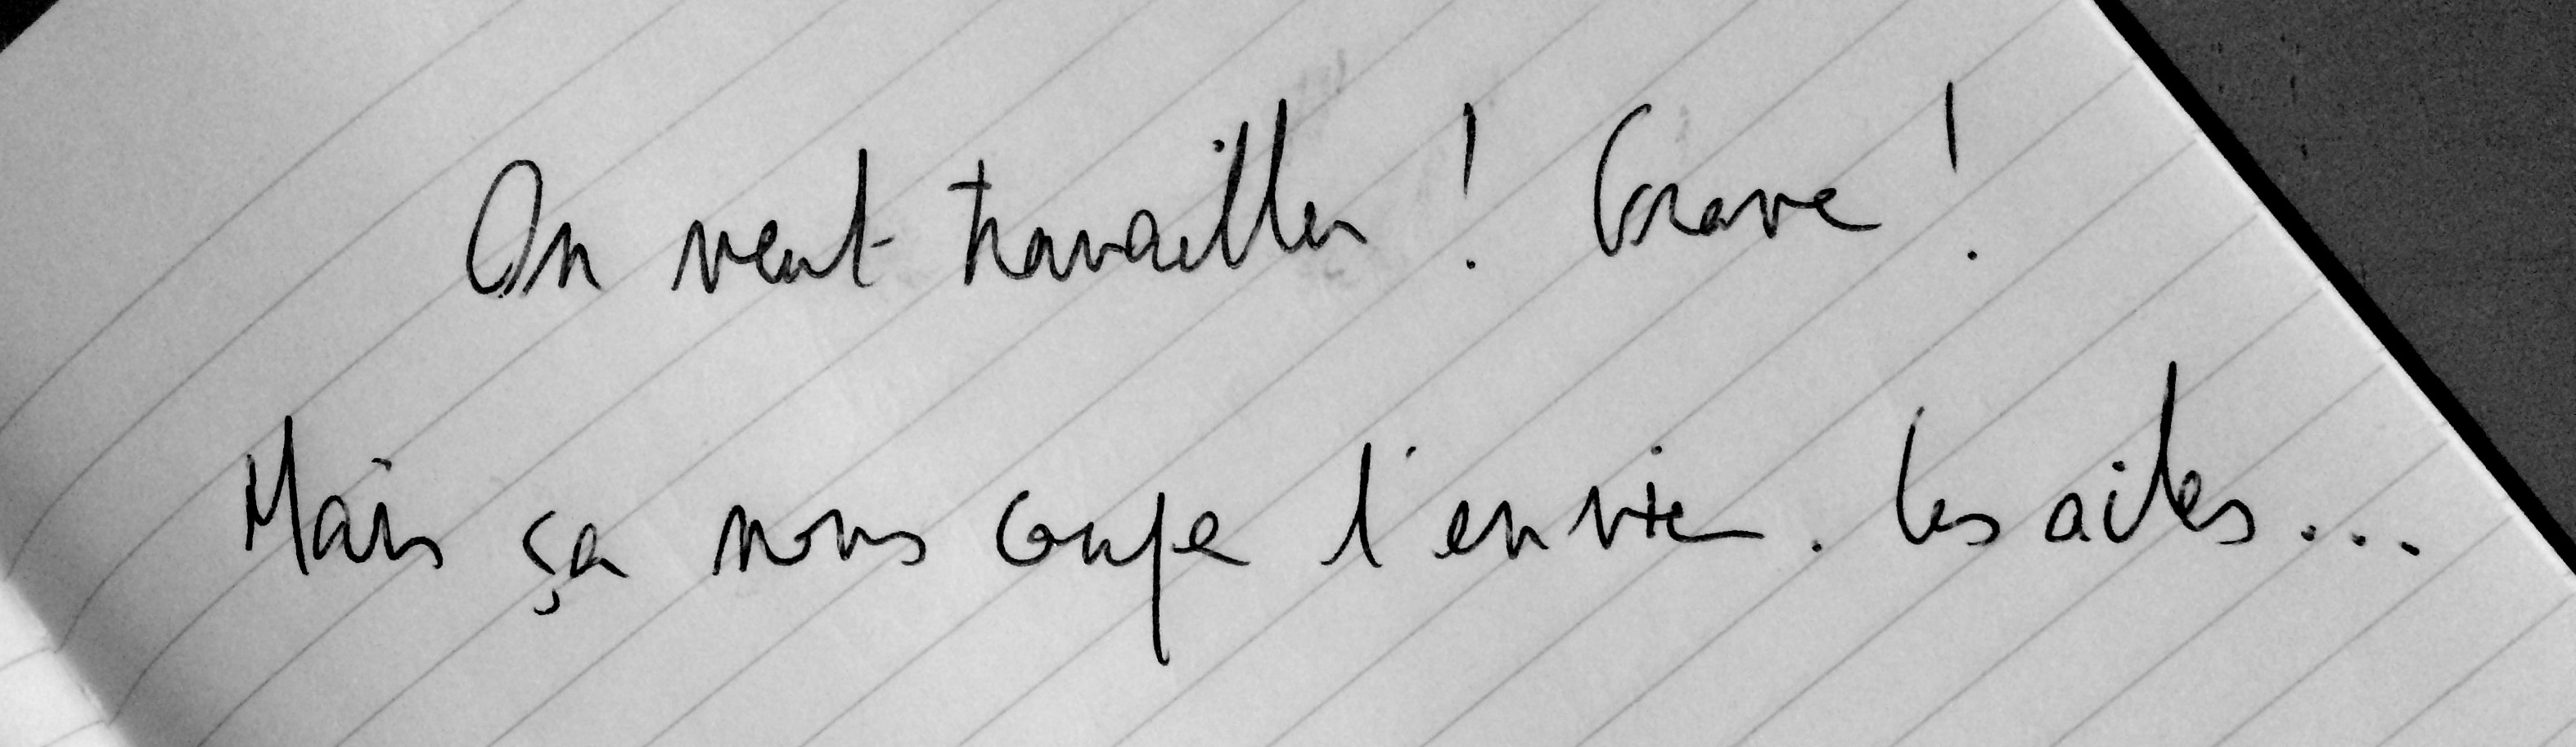 On veut travailler ! Grave !
Mais ça nous coupe l'envie. les ailes...